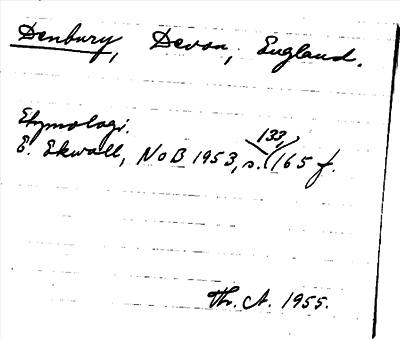 Denbury, Devon, England.
Etymologi.
E. Ekwall, NoB 1953, s. (133,) 165 f.
Th. A. 1955.